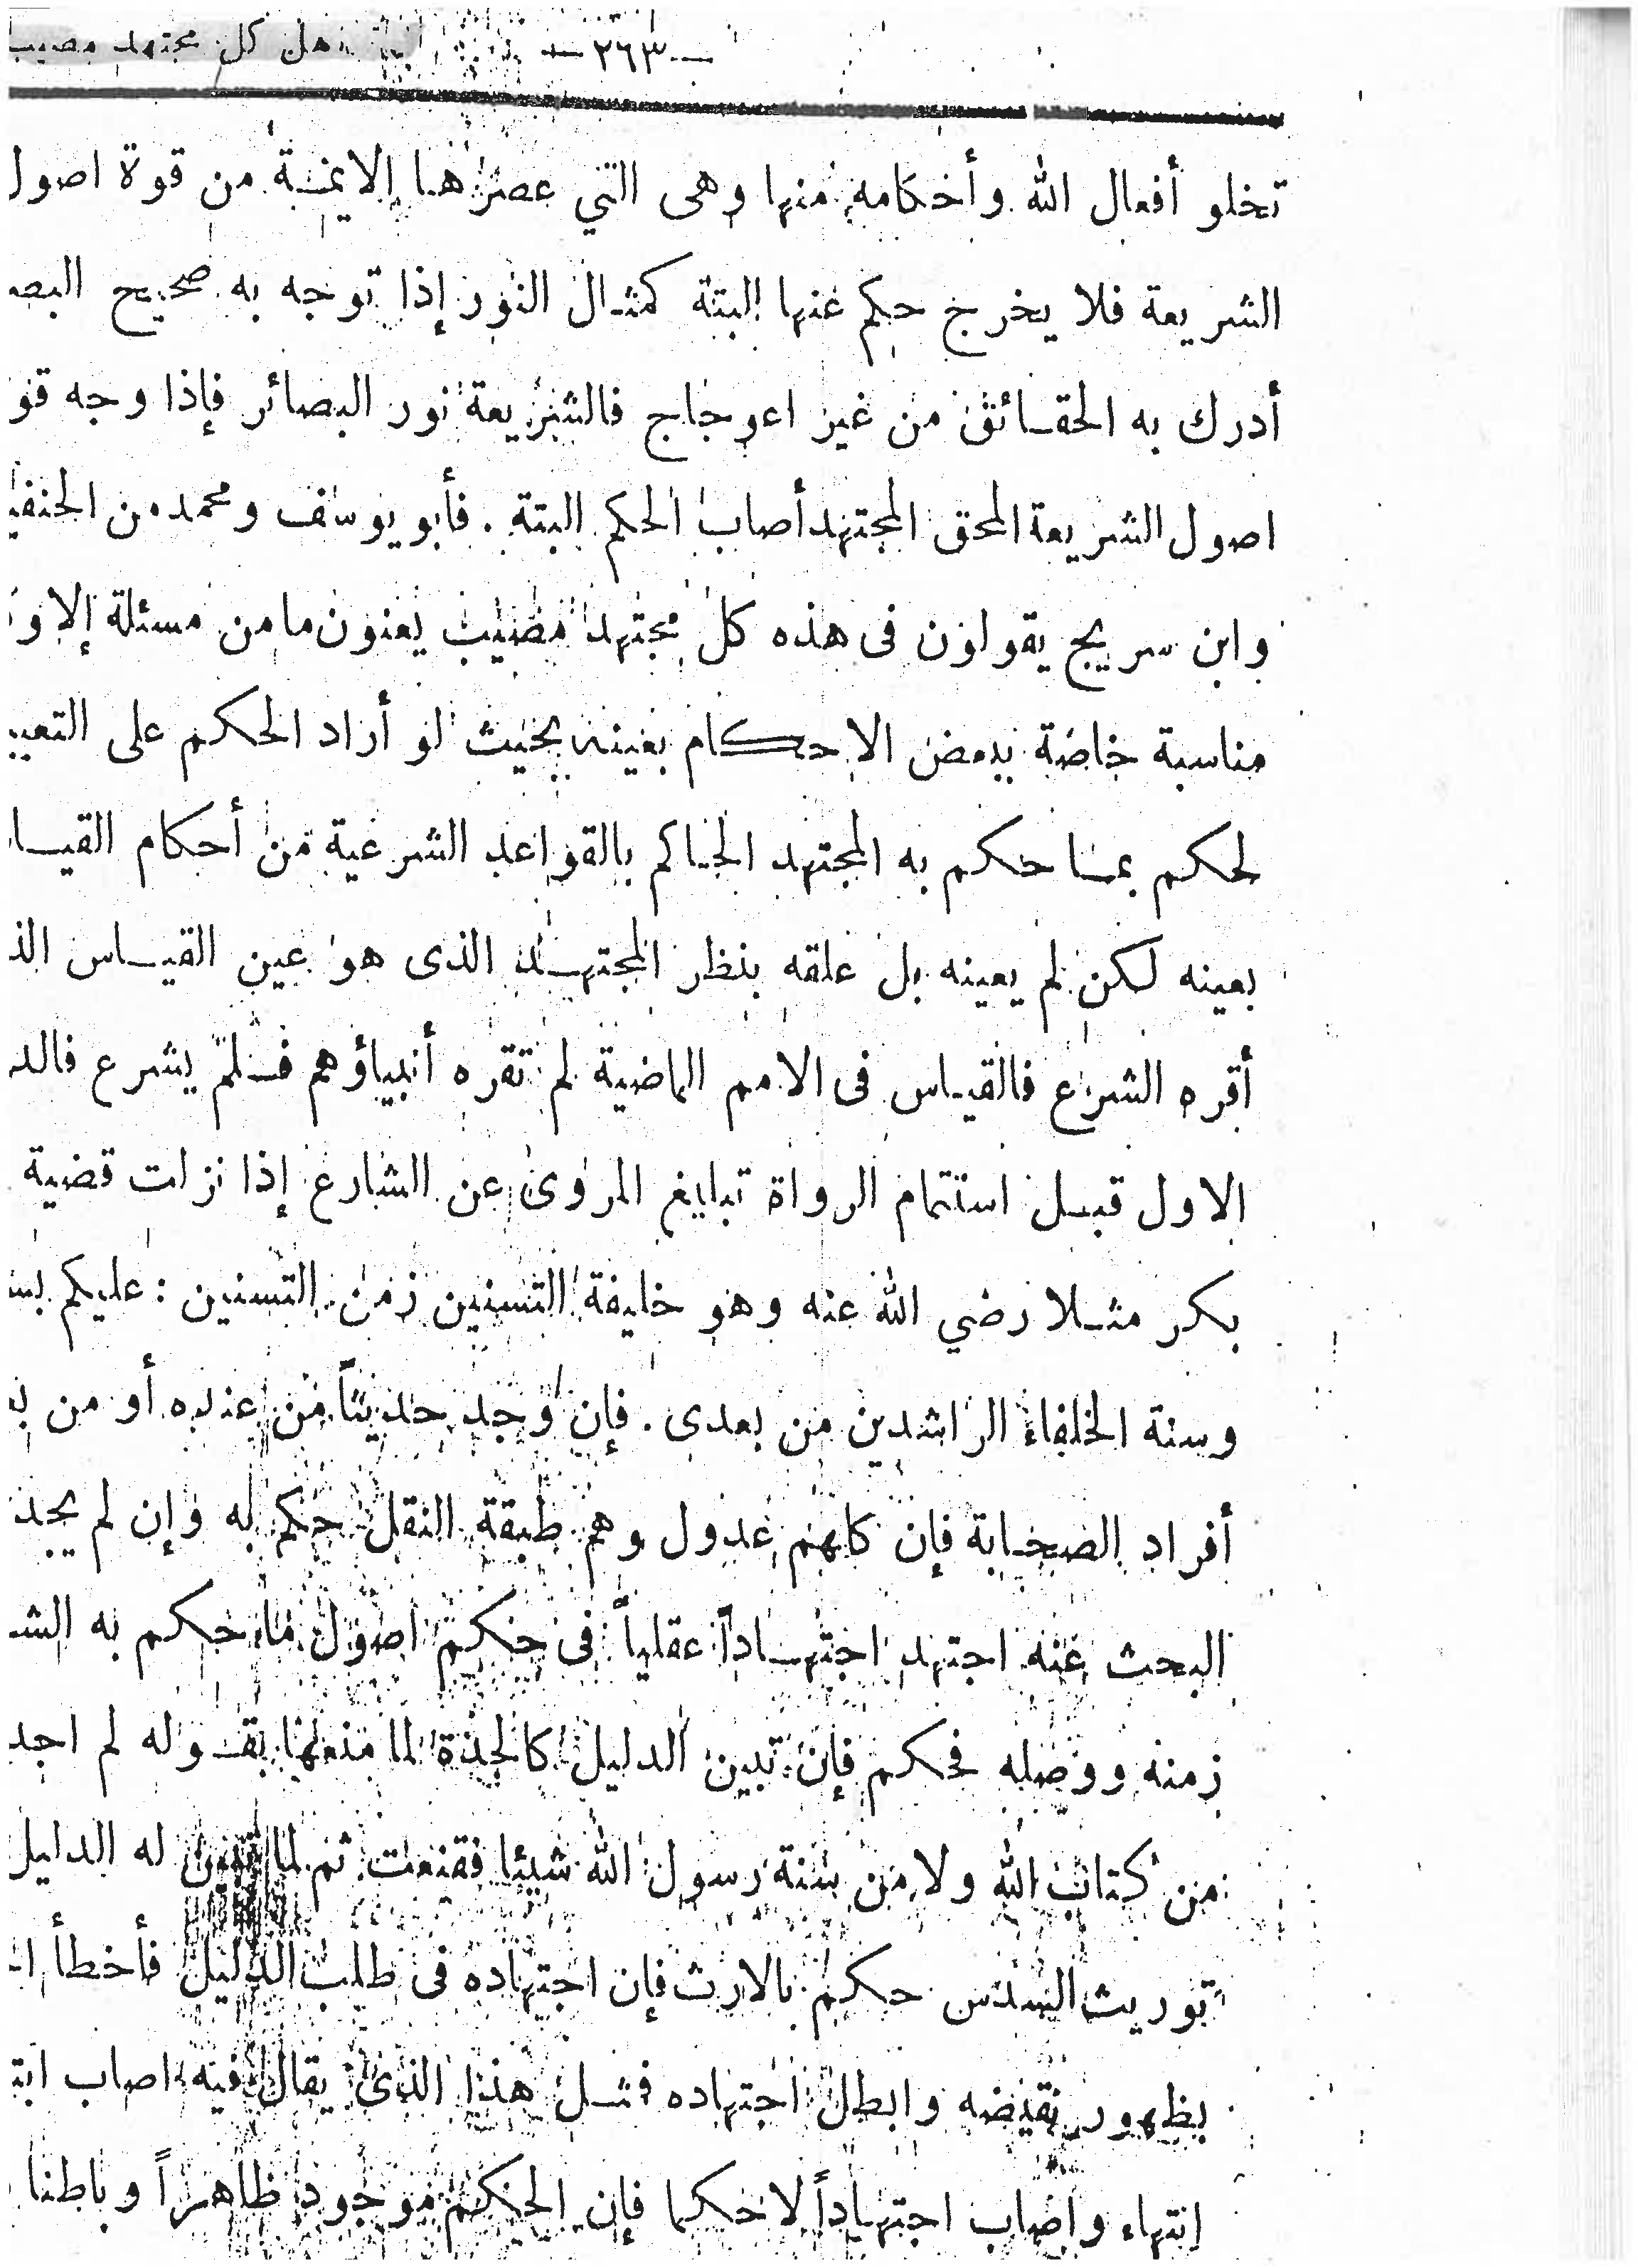 هل كل مجتهد مصيب — ٢٦٣ —
تخلو أفعال الله وأحكامه منها وهى التي عصرها الايمة من قوة اصول
الشريعة فلا يخرج حكم عنها البتة كمثال النور إذا توجه به صحيح
أدرك به الحقائق من غير اعوجاج فالشريعة نور البصائر فإذا وجه
اصول الشريعة المحق المجتهد أصاب الحكم البتة . فأبو يوسف ومحمد من
وابن سريج يقولون فى هذه كل مجتهد مصيب يعنون ما من مسئلة إلا
مناسبة خاصة ببعض الاحكام بعينه بحيث لو أراد الحكم على
لحكم بما حكم به المجتهد الحاكم بالقواعد الشرعية من أحكام
بعينه لكن لم يعينه بل علقه بنظر المجتهد الذى هو عين القياس
أقره الشرع فالقياس فى الامم الماضية لم تقره أنبياؤهم فلم يشرع
الاول قبل استتمام الرواة تبليغ المروى عن الشارع إذا نزلت قضية
بكر مثلا رضي الله عنه وهو خليفة التسنين زمن التسنين : عليكم
وسنة الخلفاء الراشدين من بعدى . فإن وجد حديثاً من عنده أو من
أفراد الصحابة فإن كلهم عدول وهم طبقة النقل حكم له وإن لم يجد
البحث عنه اجتهد اجتهاداً عقلياً فى حكم اصول ما حكم به
زمنه ووصله فحكم فإن تبين الدليل كالجدة لما منعها بقوله لم اجد
من كتاب الله ولا من سنة رسول الله شيئا فقنعت ثم لما تبين له الدليل
توريث السدس حكم بالارث فإن اجتهاده فى طلب الدليل فأخطأ
بظهور نقيضه وابطل اجتهاده فمثل هذا الذى يقال فيه اصاب
انتهاء واصاب اجتهاداً لا حكما فإن الحكم موجود ظاهراً وباطنا